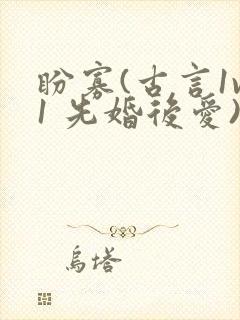 盼寡(古言1v
1 先婚後愛)
烏塔